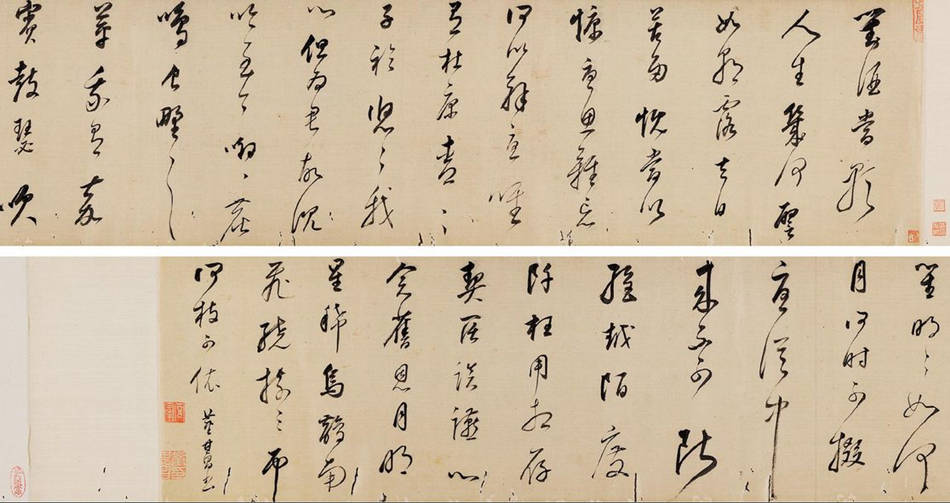 對酒當歌
人生幾何譬
如朝露去日
苦多慨當以
慷憂思難忘
何以解憂唯
有杜康青〻
子衿悠〻我
心但為君故沉
吟至今呦〻鹿
鳴食野之
苹我有嘉
賓鼓瑟吹
笙明〻如何
月何時可掇
憂從中
來不可斷
絕越陌度
阡枉用相存
契闊談讌心
念舊恩月明
星稀烏鵲南
飛繞樹三帀
何枝可依 董其昌書